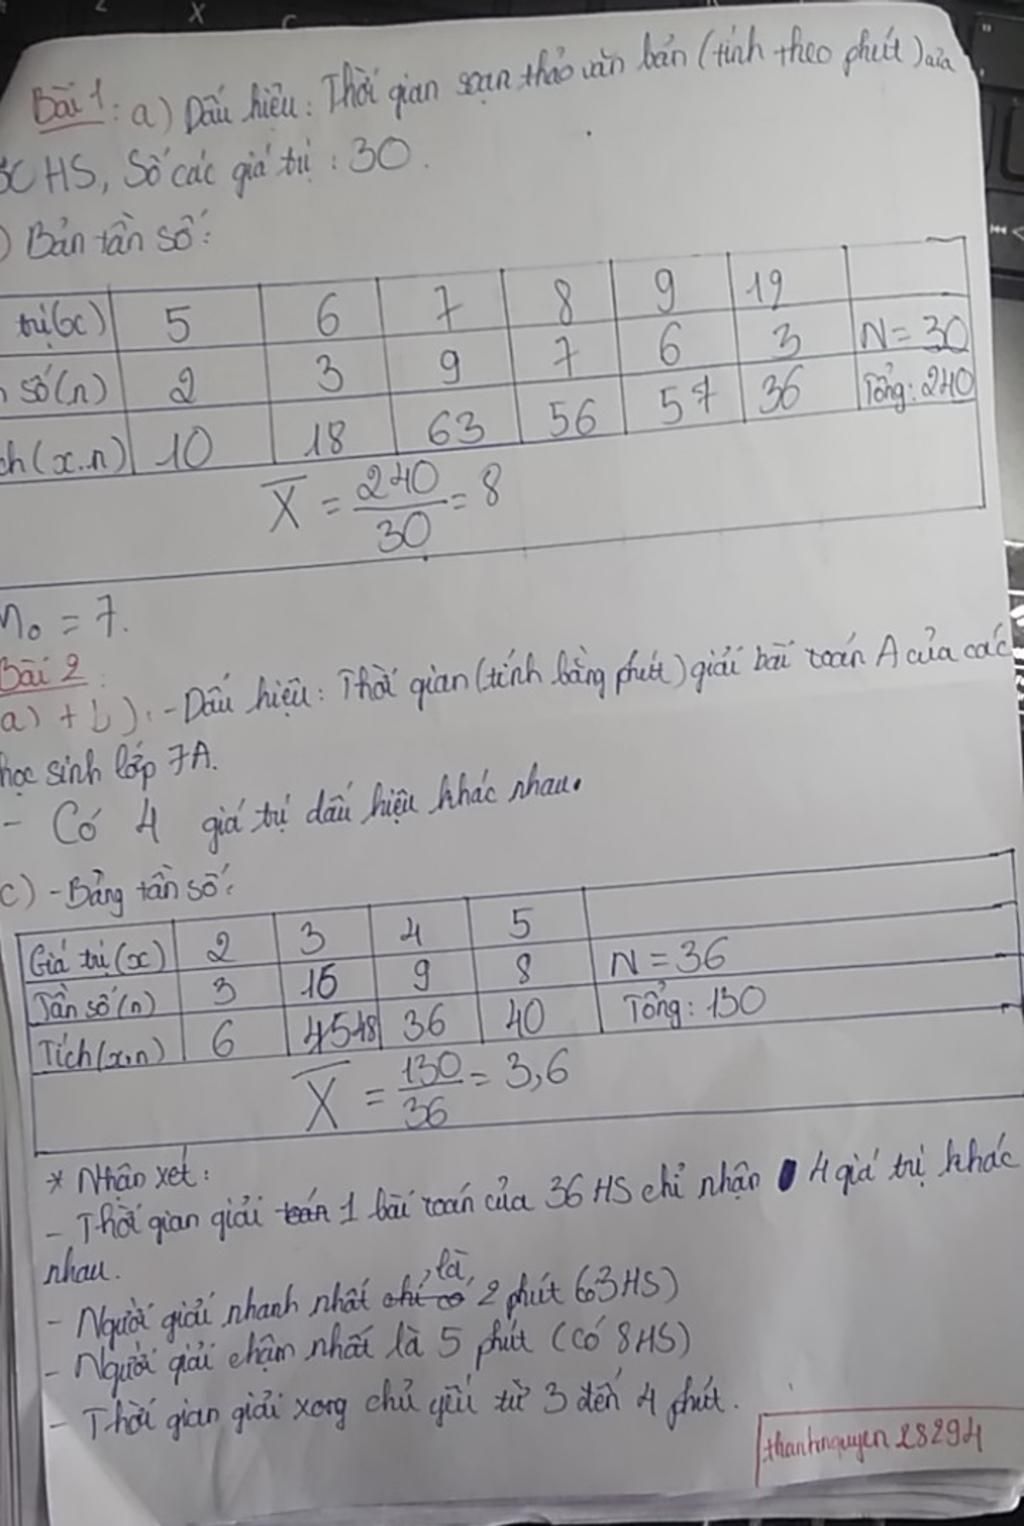 Bài 1: a) Dấu hiệu: Thời gian soạn thảo văn bản (tính theo phút) của
3C HS, Số các giá trị: 30.
) Bản tần số:
trị(x) 5 6 7 8 9 12
số(n) 2 3 9 7 6 3 N = 30
ch(x.n) 10 18 63 56 57 36 Tổng: 240
X = 240/30 = 8
M0 = 7.
Bài 2:
a) + b): - Dấu hiệu: Thời gian (tính bằng phút) giải bài toán A của các
học sinh lớp 7A.
- Có 4 giá trị dấu hiệu khác nhau.
c) - Bảng tần số:
Giá trị (x) 2 3 4 5
Tần số (n) 3 16 9 8 N = 36
Tích(x.n) 6 48 36 40 Tổng: 130
X = 130/36 = 3,6
* Nhận xét:
- Thời gian giải toán 1 bài toán của 36 HS chỉ nhận 4 giá trị khác
nhau.
- Người giải nhanh nhất là 2 phút (có 3 HS)
- Người giải chậm nhất là 5 phút (có 8 HS)
- Thời gian giải xong chủ yếu từ 3 đến 4 phút.
thanhnguyen 28294